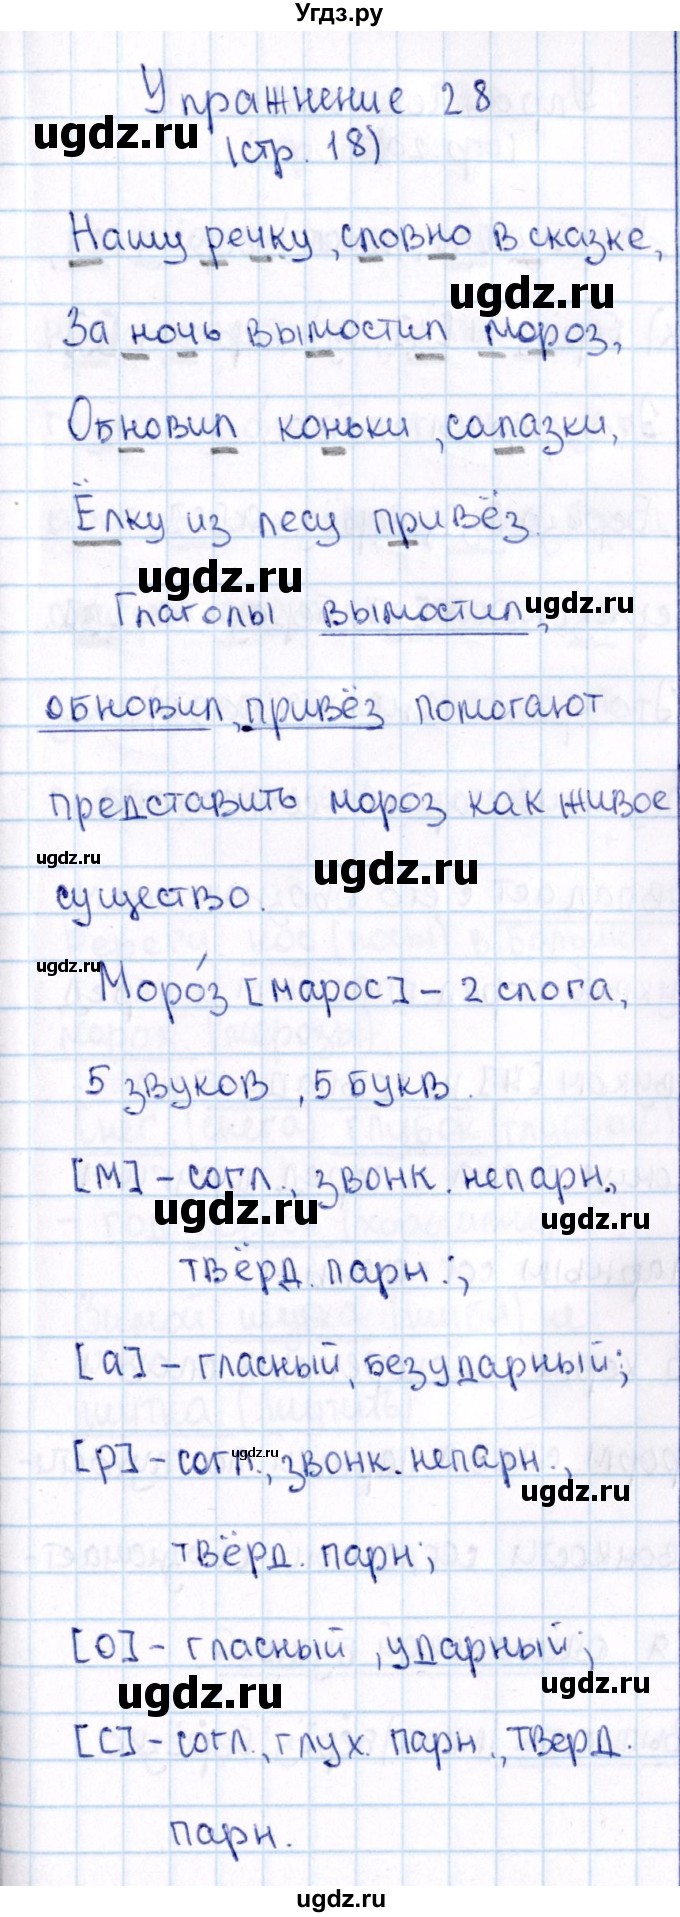 Угдз.ру
Упражнение 28
ugdz.ru
(стр. 18)
Нашу речку, словно в сказке,
ugdz.ru
За ночь вымостил мороз,
Обновил коньки, салазки,
Ёлку из лесу привёз.
ugdz.ru
ugdz.ru
Глаголы вымостил,
обновил, привёз помогают
представить мороз как живое
ugdz.ru
ugdz.ru
существо.
ugdz.ru
Моро́з [марос] – 2 слога,
5 звуков, 5 букв.
[м] – согл., звонк. непарн.,
ugdz.ru
ugdz.ru
твёрд. парн.;
[а] – гласный, безударный;
[р] – согл., звонк. непарн.,
ugdz.ru
ugdz.ru
твёрд. парн;
[о] – гласный, ударный;
ugdz.ru
ugdz.ru
[с] – согл., глух. парн., тверд.
парн.
ugdz.ru